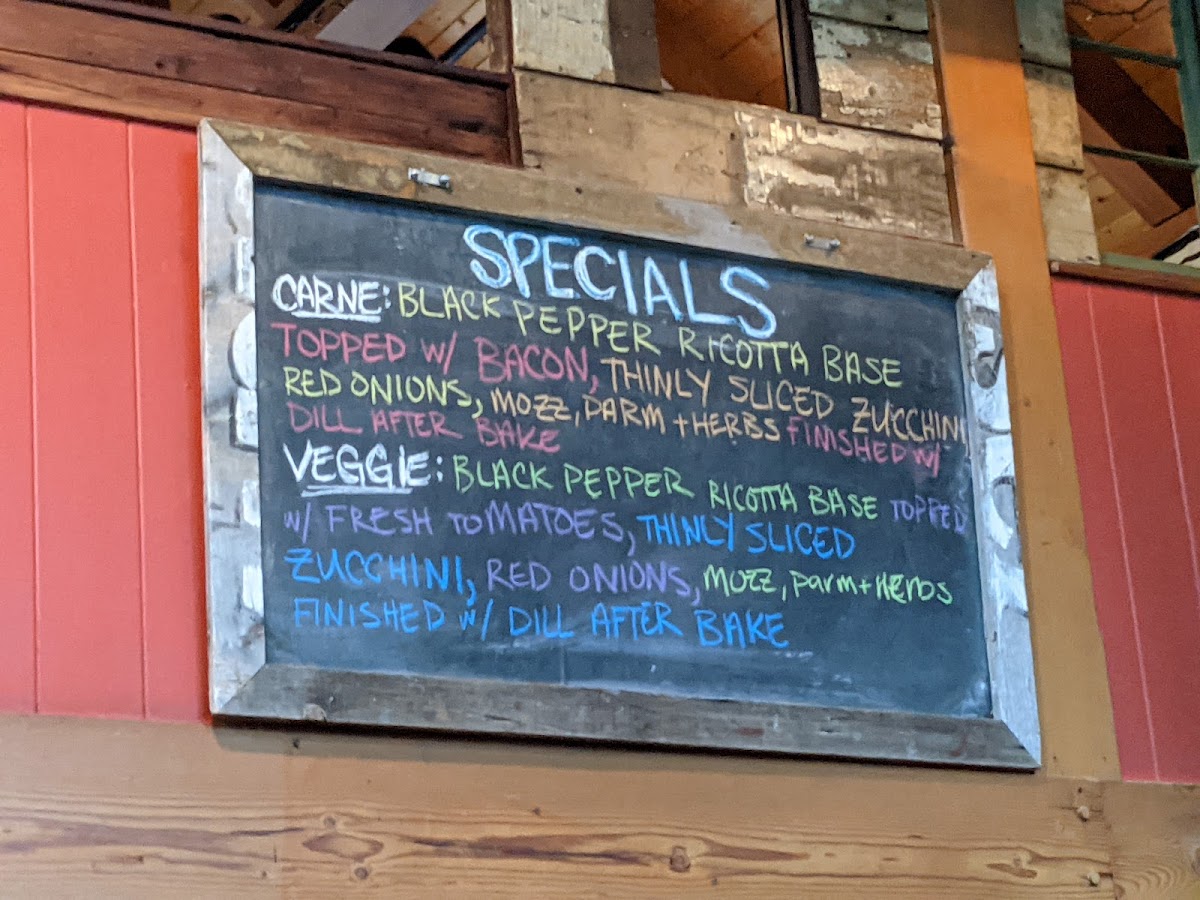 SPECIALS
CARNE: BLACK PEPPER RICOTTA BASE
TOPPED W/ BACON, THINLY SLICED ZUCCHINI
RED ONIONS, MOZZ, PARM + HERBS FINISHED W/
DILL AFTER BAKE
VEGGIE: BLACK PEPPER RICOTTA BASE TOPPED
W/ FRESH TOMATOES, THINLY SLICED
ZUCCHINI, RED ONIONS, MOZZ, Parm + HERbs
FINISHED W/ DILL AFTER BAKE